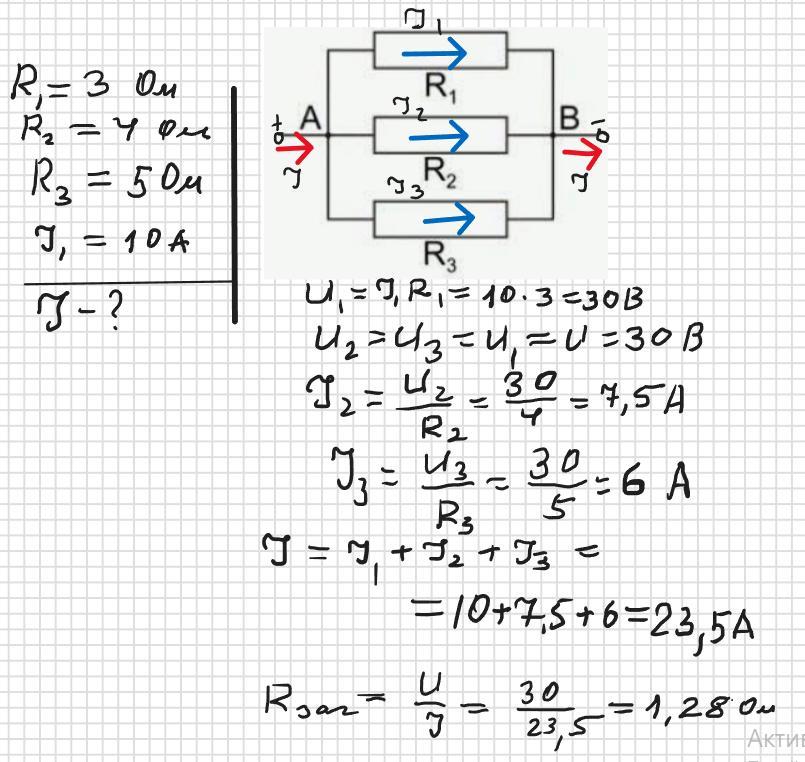 R₁ = 3 Ом
R₂ = 4 Ом
R₃ = 5 Ом
I₁ = 10 А
I - ?
I₁
R₁
A
B
+
-
I₂
R₂
I
I
I₃
R₃
U₁ = I₁R₁ = 10 · 3 = 30 В
U₂ = U₃ = U₁ = U = 30 В
I₂ = U₂/R₂ = 30/4 = 7,5 А
I₃ = U₃/R₃ = 30/5 = 6 А
I = I₁ + I₂ + I₃ =
= 10 + 7,5 + 6 = 23,5 А
Rзаг = U/I = 30/23,5 = 1,28 Ом
Актив